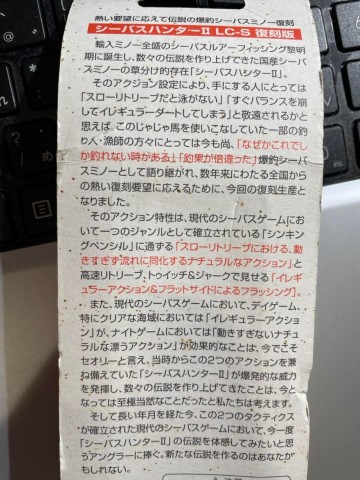 熱い要望に応えて伝説の爆釣シーバスミノー復刻
シーバスハンターⅡ LC-S 復刻版
輸入ミノー全盛のシーバスルアーフィッシング黎明
期に誕生し、数々の伝説を作り上げてきた国産シーバ
スミノーの草分け的存在「シーバスハンターⅡ」。
そのアクション設定により、手にする人にとっては
「スローリトリーブだと泳がない」「すぐバランスを崩
してイレギュラーダートしてしまう」と敬遠されるかと
思えば、このじゃじゃ馬を使いこなしていた一部の釣
り人・漁師の方々にとっては今も尚、「なぜかこれでし
か釣れない時がある」「釣果が倍違った」爆釣シーバ
スミノーとして語り継がれ、数年来にわたる全国から
の熱い復刻要望に応えるために、今回の復刻生産と
なりました。
そのアクション特性は、現代のシーバスゲームにお
いて一つのジャンルとして確立されている「シンキン
グペンシル」に通ずる「スローリトリーブにおける、動
きすぎず流れに同化するナチュラルなアクション」と
高速リトリーブ、トゥイッチ&ジャークで見せる「イレギ
ュラーアクション&フラットサイドによるフラッシング」。
また、現代のシーバスゲームにおいて、デイゲーム、
特にクリアな海域においては「イレギュラーアクショ
ン」が、ナイトゲームにおいては「動きすぎないナチュ
ラルな漂うアクション」が効果的なことは、今でこそ
セオリーと言え、当時からこの2つのアクションを兼
ね備えていた「シーバスハンターⅡ」が爆発的な威力
を発揮し、数々の伝説を作り上げてきたことは、今と
なっては至極当然なことだったと私たちは考えます。
そして長い年月を経た今、この2つのタクティクス
が確立された現代のシーバスゲームにおいて、今一度
「シーバスハンターⅡ」の伝説を体感してみたいと思
うアングラーに捧ぐ。新たな伝説を作るのはあなたか
もしれない。